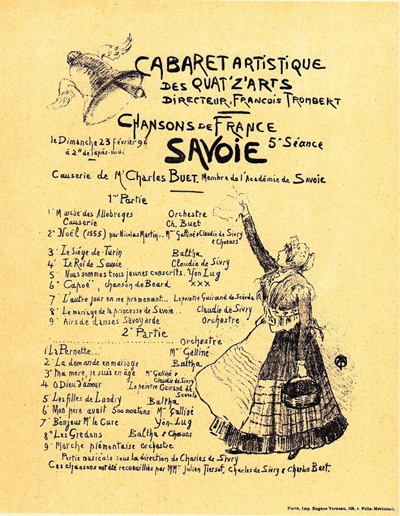 CABARET ARTISTIQUE
DES QUAT'Z'ARTS
DIRECTEUR, FRANCOIS TROMBERT
CHANSONS DE FRANCE
le Dimanche 23 février 96
à 2h de l'après-midi
SAVOIE 5e Séance
Causerie de Mr Charles BUET, Membre de l'Académie de Savoie
1re Partie
1° Marche des Allobroges Orchestre
Causerie Ch. Buet
2° Noël (1555) par Nicolas Martin.. Mme Galliné Claudie de Sivry
& Choeurs
3° Le Siège de Turin Baltha
4° Le Roi de Savoie Claudie de Sivry
5 Nous sommes trois jeunes conscrits. Yon Lug
6° Capoë, chanson de Béard xxx
7° L'autre jour en me promenant... Le peintre Guirand de Scévola
8° Le mariage de la princesse de Savoie.. Claudie de Sivry
9° Airs de danses Savoyarde Orchestre
2e Partie
Orchestre
1 La Pernette... Me Galliné
2° La demande en mariage Baltha
3° Ma mère, je suis en âge Me Galliné &
Claudie de Sivry
4° O Dieu d'amour Le peintre Guirand de
Scevola
5 Les filles de Landry Baltha
6° Mon père avait 500 moutons Me Galliné
7° Bonjour Mr le Curé Yon-Lug
8° Les Gredons Baltha & Choeurs
9° Marche piémontaise Orchestre
Partie musicale sous la direction de Charles de Sivry
Ces chansons ont été recueillies par MMrs Julien Tiersot, Charles de Sivry & Charles Buet.
Paris, Imp. Eugène Verneau, 108, r. Folie-Méricourt.